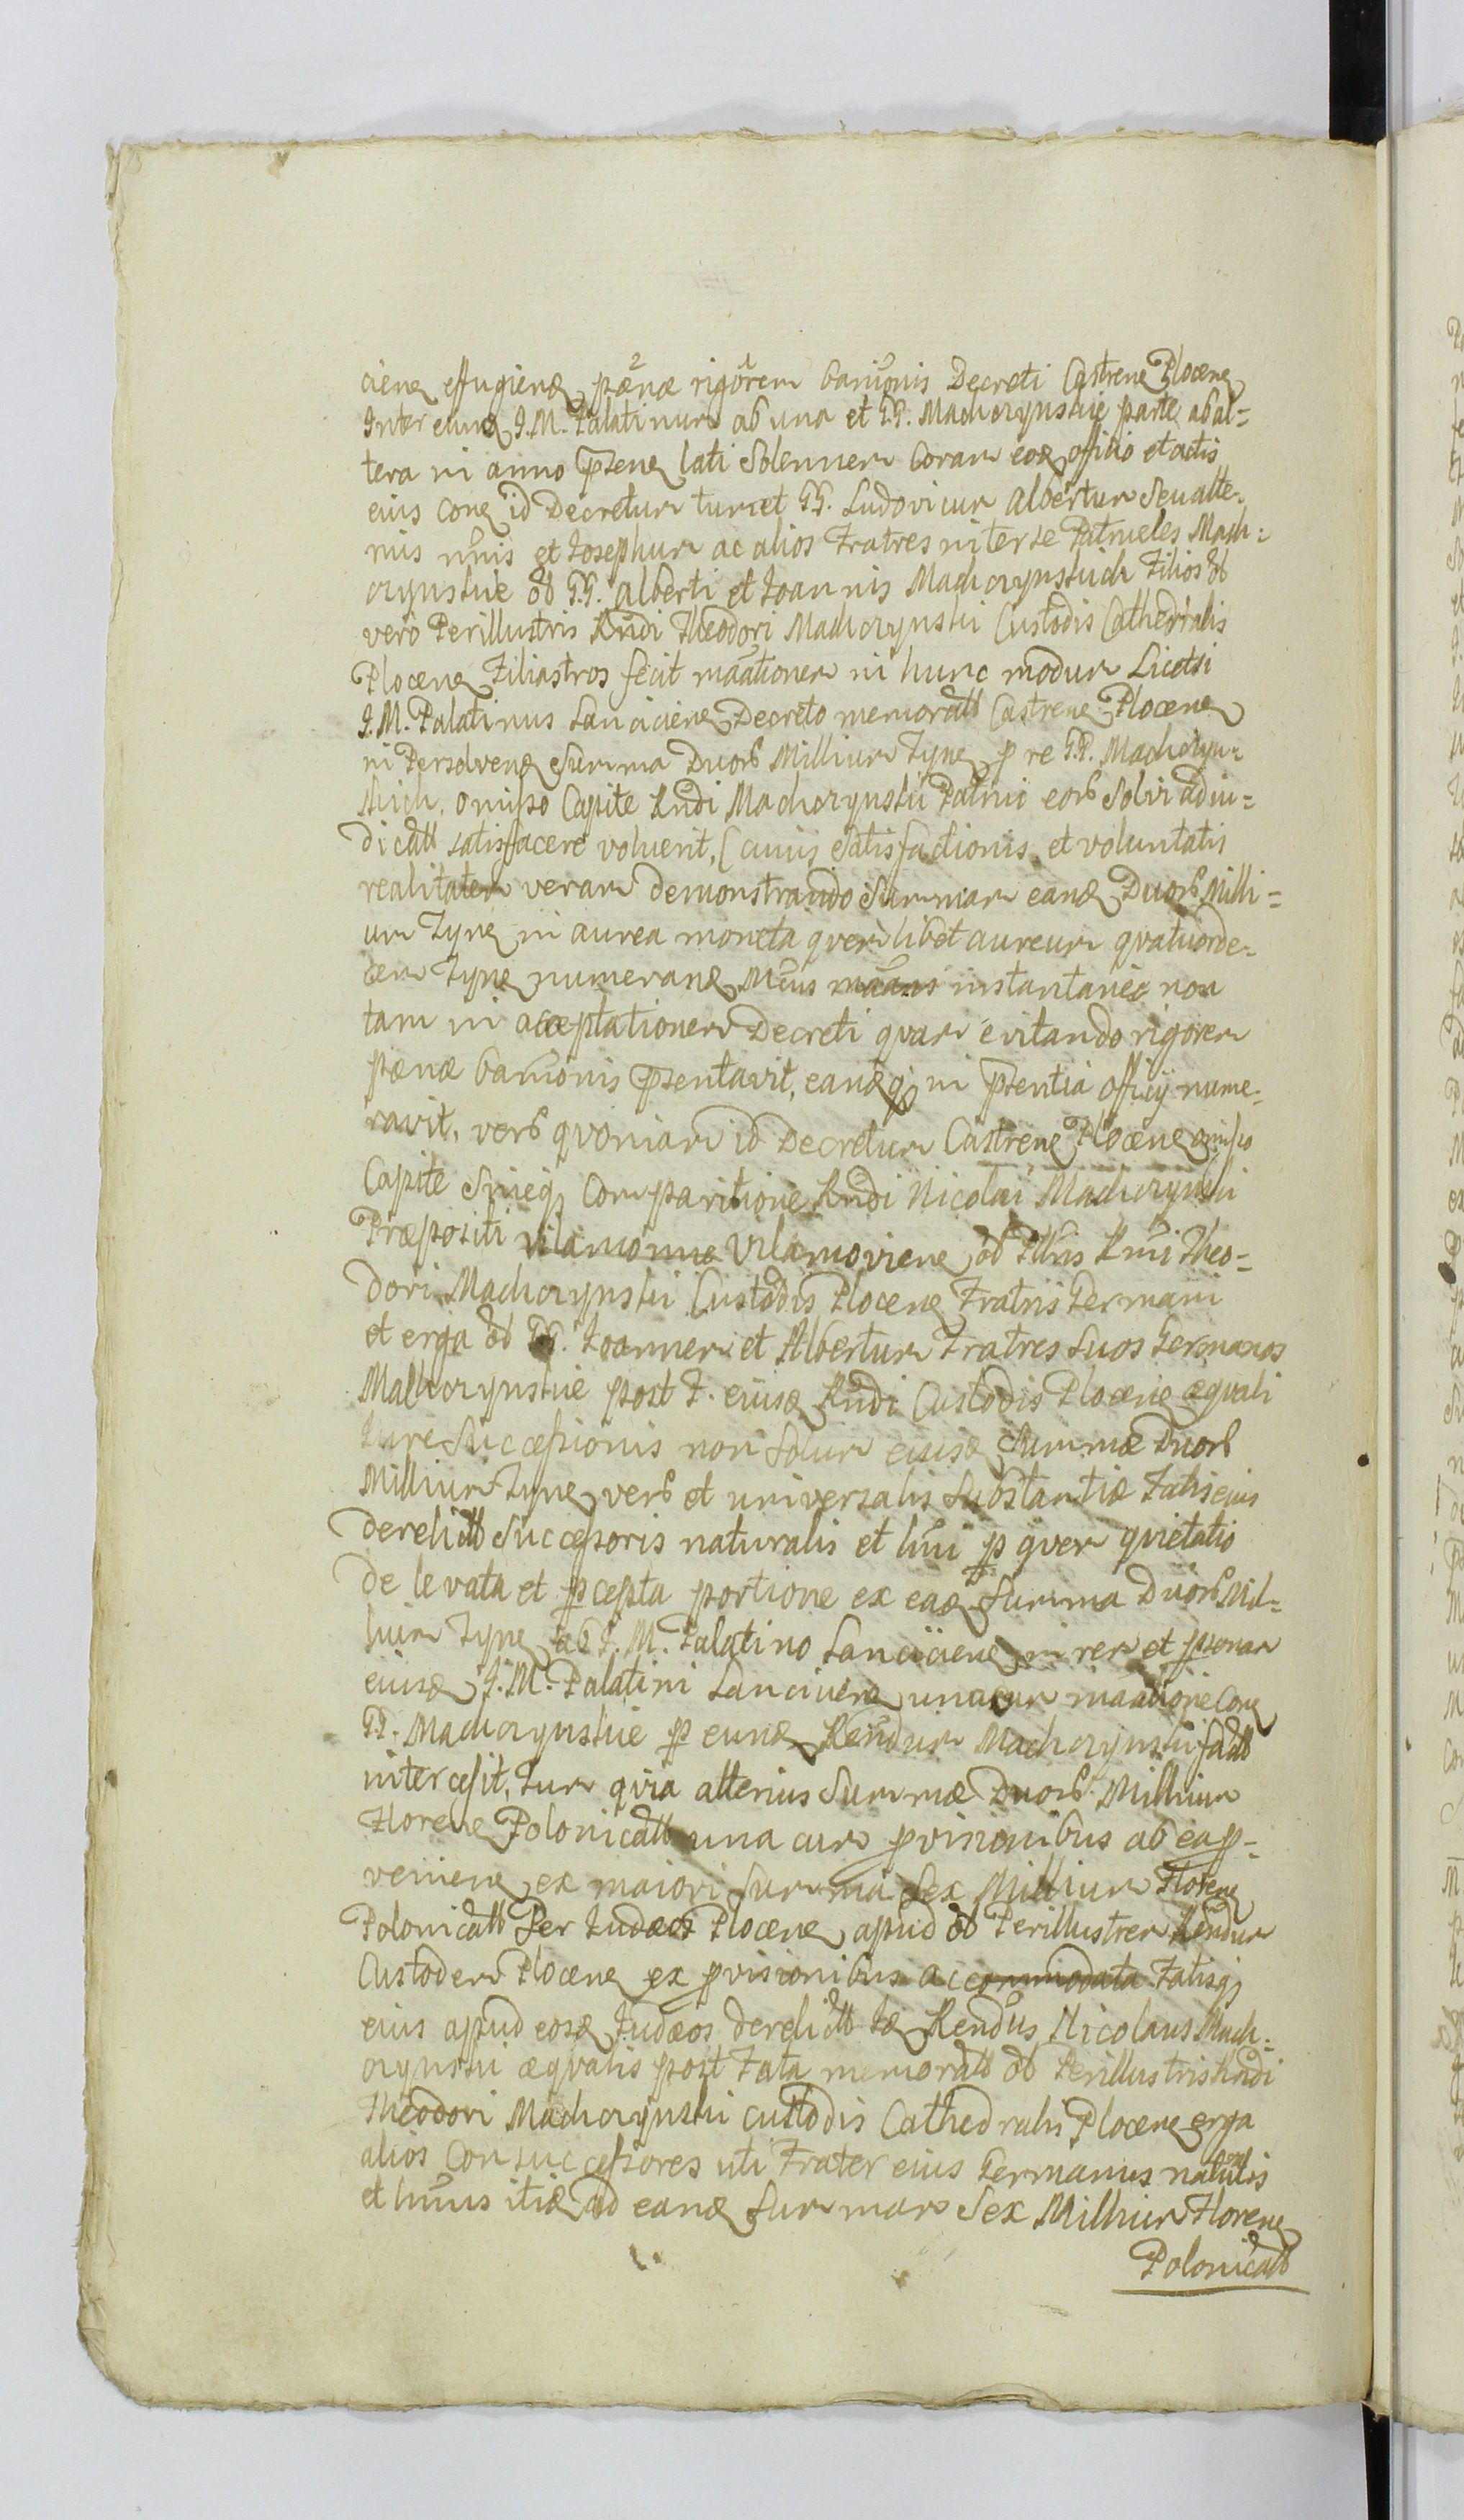 ciens effugiens pænæ rigorem banionis Decreti Castrens Plocens
Inter eund I. M. Palatinum ab una et GG. Machczynskie parte ab al=
tera in anno psens lati Solennem Coram eod officio et actis
eius cone id Decretum tum et GG. Ludovicum Albertum Seu alte-
rius nñis et Josephum ac alios Fratres inter se Patrueles Mach=
czynskie od GG. Alberti et Joannis Machczynskich Filios od
vero Perillustris Rndi Theodori Machczynski Custodis Cathedralis
Plocens Filiastros fecit maationem in hunc modum Licetsi
I. M. Palatinus Lanciciens Decreto memoratt Castrens Plocens
in Persolvend Summa Duorb Millium Fyne p re GG. Machczyn-
skich. omisso Capite Rndi Machczynskii Patrui eorb Solvi adiu=
dicatt satisfacere voluerit, (cuius satisfactionis et voluntatis
realitatem veram demonstrando Summam eand Duorb Milli=
um Fyne in aurea moneta quemlibet aureum quatuorde-
cem Fyne numerand Mĕus instantanee non
tam in acceptationem Decreti quam evitando rigorem
pænæ banionis psentavit, eandq in psentia officij nume-
ravit, verb quoniam id Decretum Castrens Plocens omisso
Capite Sineq Comparitione Rndi Nicolai Machczynski
Præpositi Vilamoviens od Illris Rnñi Theo-
dori Machczynski Custodis Plocens Fratris Germani
et erga od GG. Joannem et Albertum Fratres Suos Germanos
Machczynskie post F. eiusd Rndi Custodis Plocens æquali
Iure Successionis non Solum eiusd Summæ Duorb
Millium Fyne verb et universalis Substantiæ Fatis eius
derelictt Successoris naturalis et lñmi p quem quietatio
de levata et pcepta portione ex ead Summa Duorb Mil=
lium Fyne ab I. M. Palatino Lanciciens in rem et psonam
eiusd I. M. Palatini Lanciciens unacum maatione Cone
GG. Machczynskie p eund Rendum Machczynski factt
intercessit, Tum quia alterius Summæ Duorb Millium
Florens Polonicatt una cum pvisionibus ab ea p-
veniens ex maiori Summa Sex Millium Florens
Polonicatt Per Judæos Plocens apud od Perillustrem Rendum
Custodem Plocens ex pvisionibus accommodata Fatisq
eius apud eosd Judæos derelictt id Rendus Nicolaus Mach-
czynski æqualis post Fata memoratt od Perillustris Rndi
Theodori Machczynski Custodis Cathedralis Plocens erga
alios Consuccessores uti Frater eius Germanus naturalis
et lñmus itid ad eand Summam Sex Millium Florens
Polonicatt